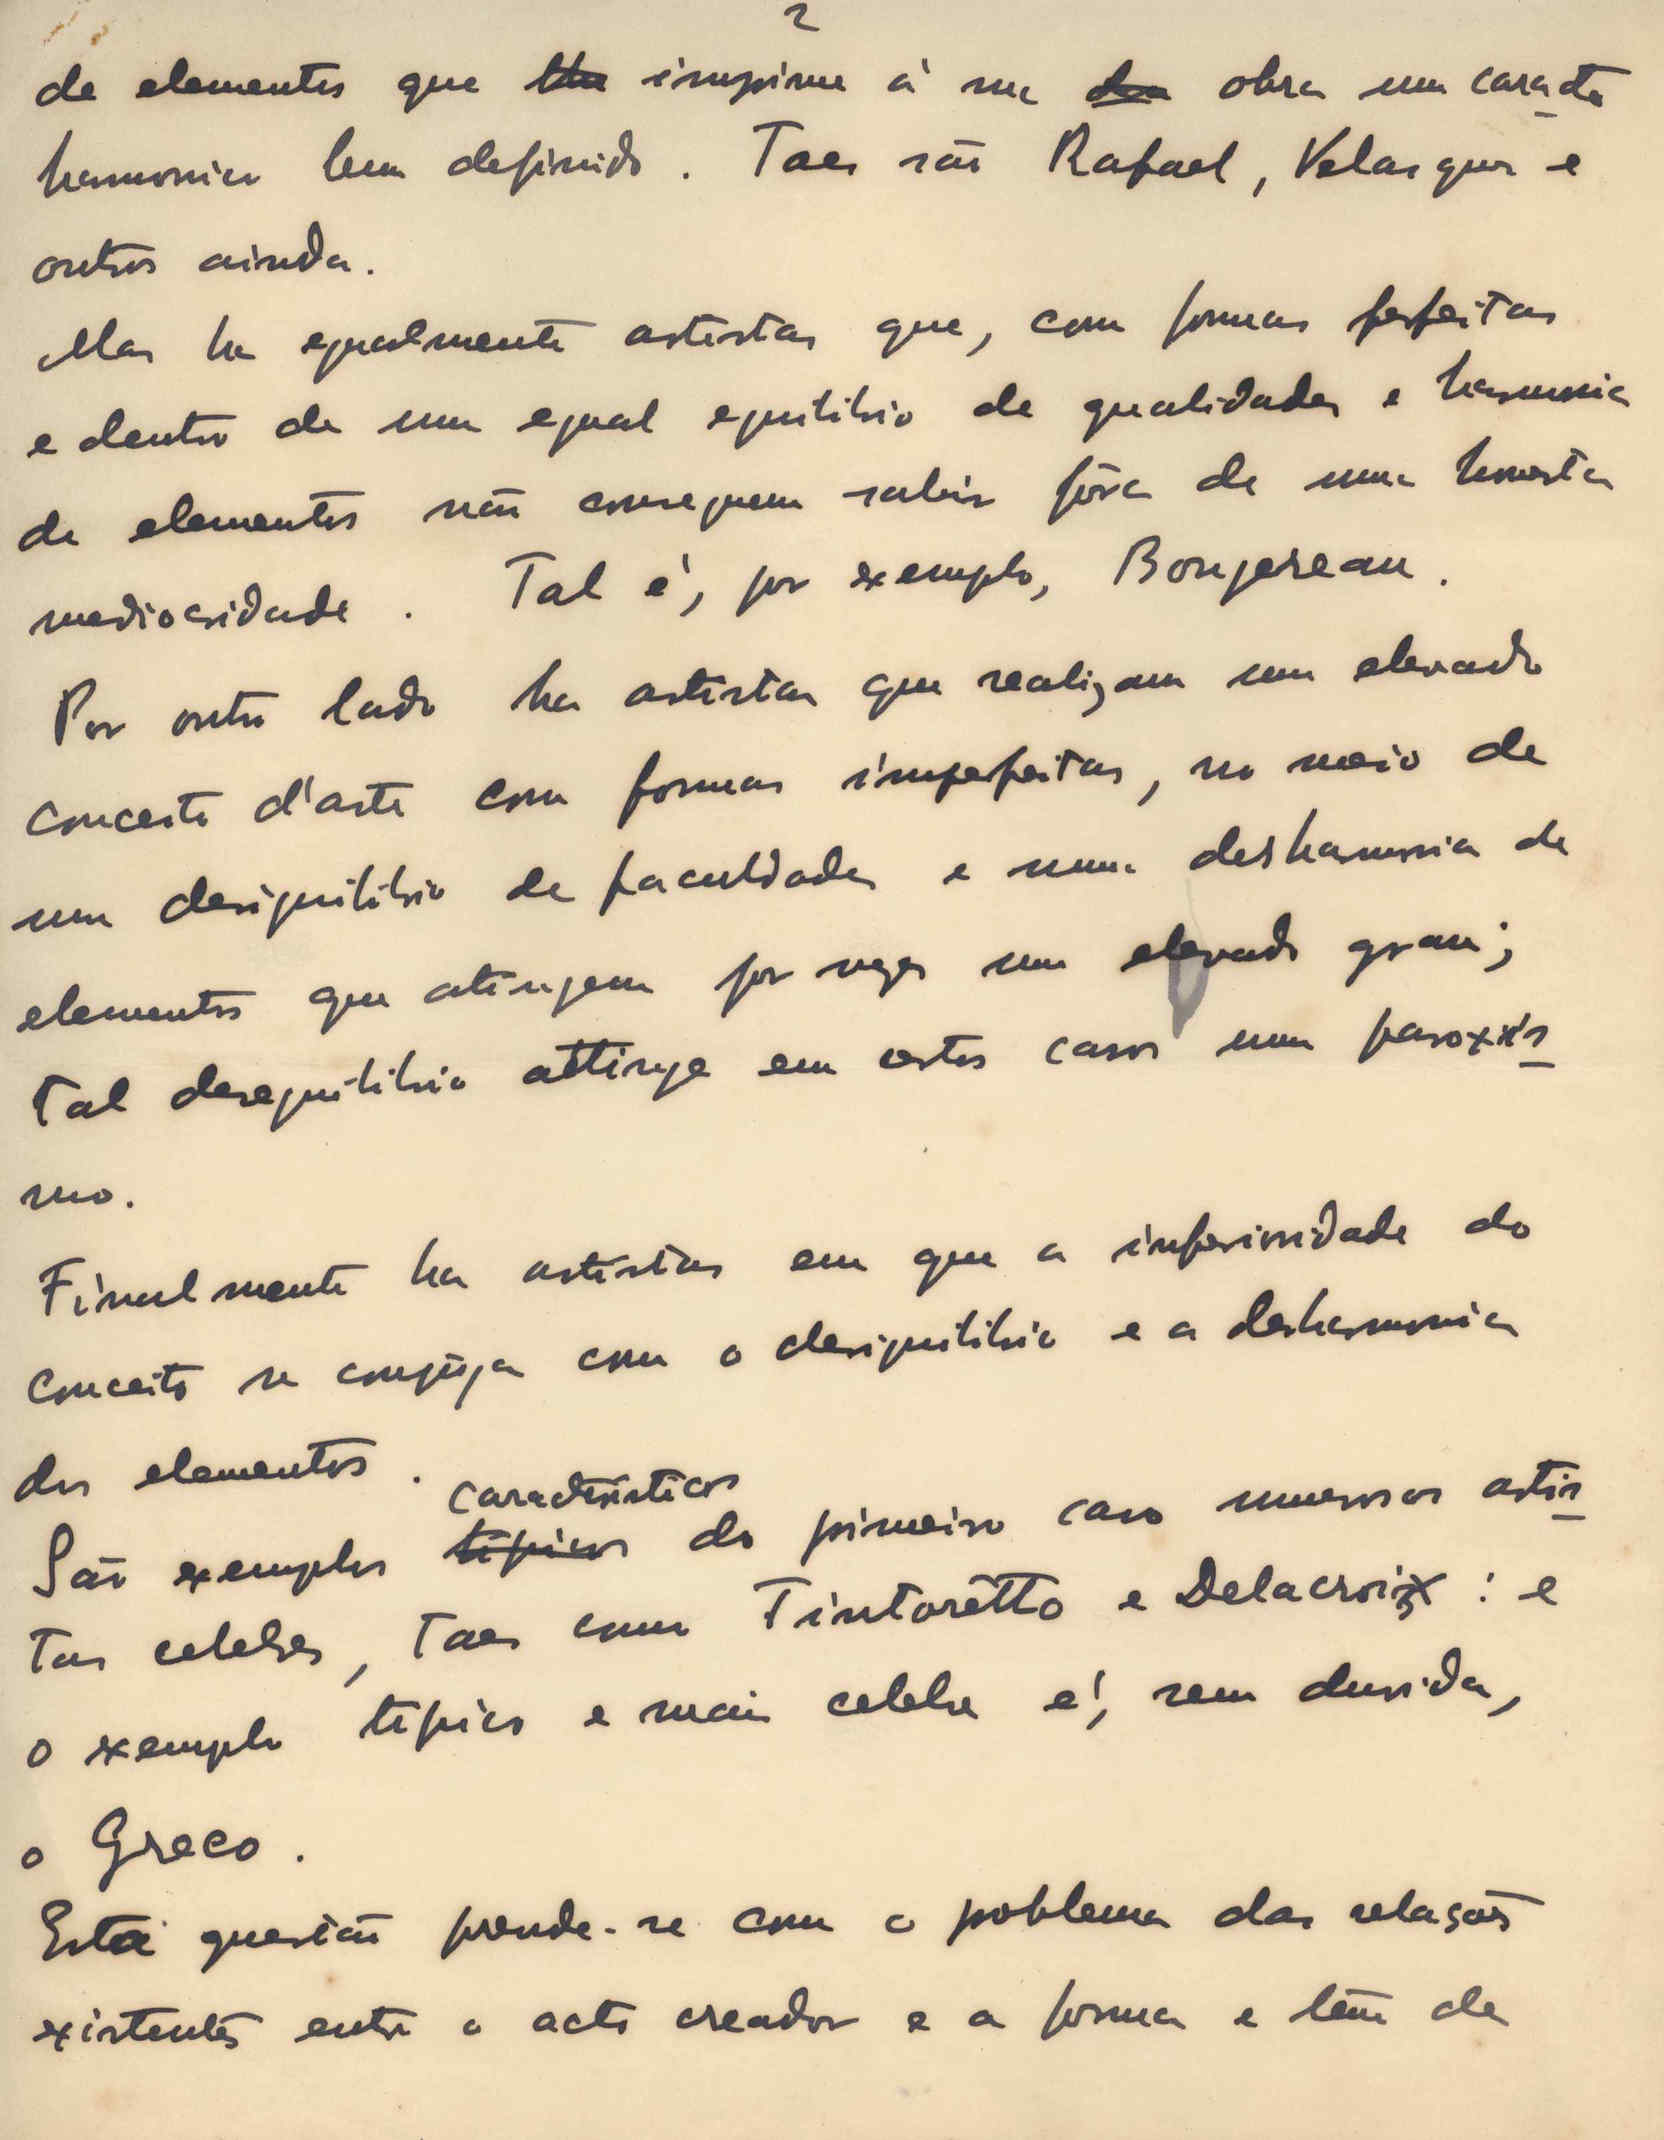 2
de elementos que lhe imprime á sua da obra um caracte
harmonico bem definido. Taes são Rafael, Velasquez e
outros ainda.
Mas ha egualmente artistas que, com formas perfeitas
e dentro de um egual equilibrio de qualidades e harmonia
de elementos não conseguem sahir fóra de uma honesta
mediocridade. Tal é, por exemplo, Bougereau.
Por outro lado ha artistas que realizam um elevado
conceito d'arte com formas imperfeitas, no meio de
um desiquilibrio de faculdades e numa desharmonia de
elementos que atingem por vezes um elevado grau;
tal desequilibrio attinge em certos casos um paroxis
mo.
Finalmente ha artistas em que a inferioridade do
conceito se conjuga com o desiquilibrio e a desharmonia
dos elementos.
característicos
São exemplos típicos do primeiro caso numerosos artis
tas celebres, taes como Tintoretto e Delacroix: e
o exemplo típico e mais celebre é, sem duvida,
o Greco.
Esta questão prende-se com o problema das relações
existentes entre o acto creador e a forma e tem de